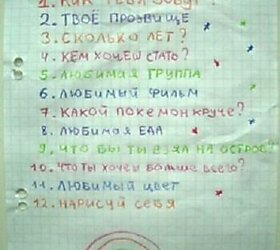 1. КАК ТЕБЯ ЗОВУТ?
2. ТВОЁ ПРОЗВИЩЕ
3. СКОЛЬКО ЛЕТ?
4. КЕМ ХОЧЕШ СТАТЬ?
5. ЛЮБИМАЯ ГРУППА
6. ЛЮБИМЫЙ ФИЛЬМ
7. КАКОЙ ПОКЕМОН КРУЧЕ?
8. ЛЮБИМАЯ ЕДА
9. ЧТО БЫ ТЫ ВЗЯЛ НА ОСТРОВ?
10. ЧТО ТЫ ХОЧЕШ БОЛЬШЕ ВСЕГО?
11. ЛЮБИМЫЙ ЦВЕТ
12. НАРИСУЙ СЕБЯ